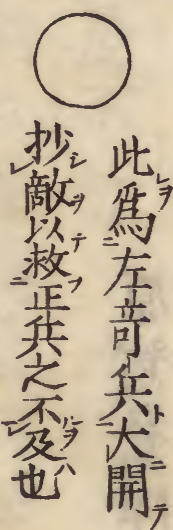 此爲左竒兵大開
抄敵以救正兵之不及也